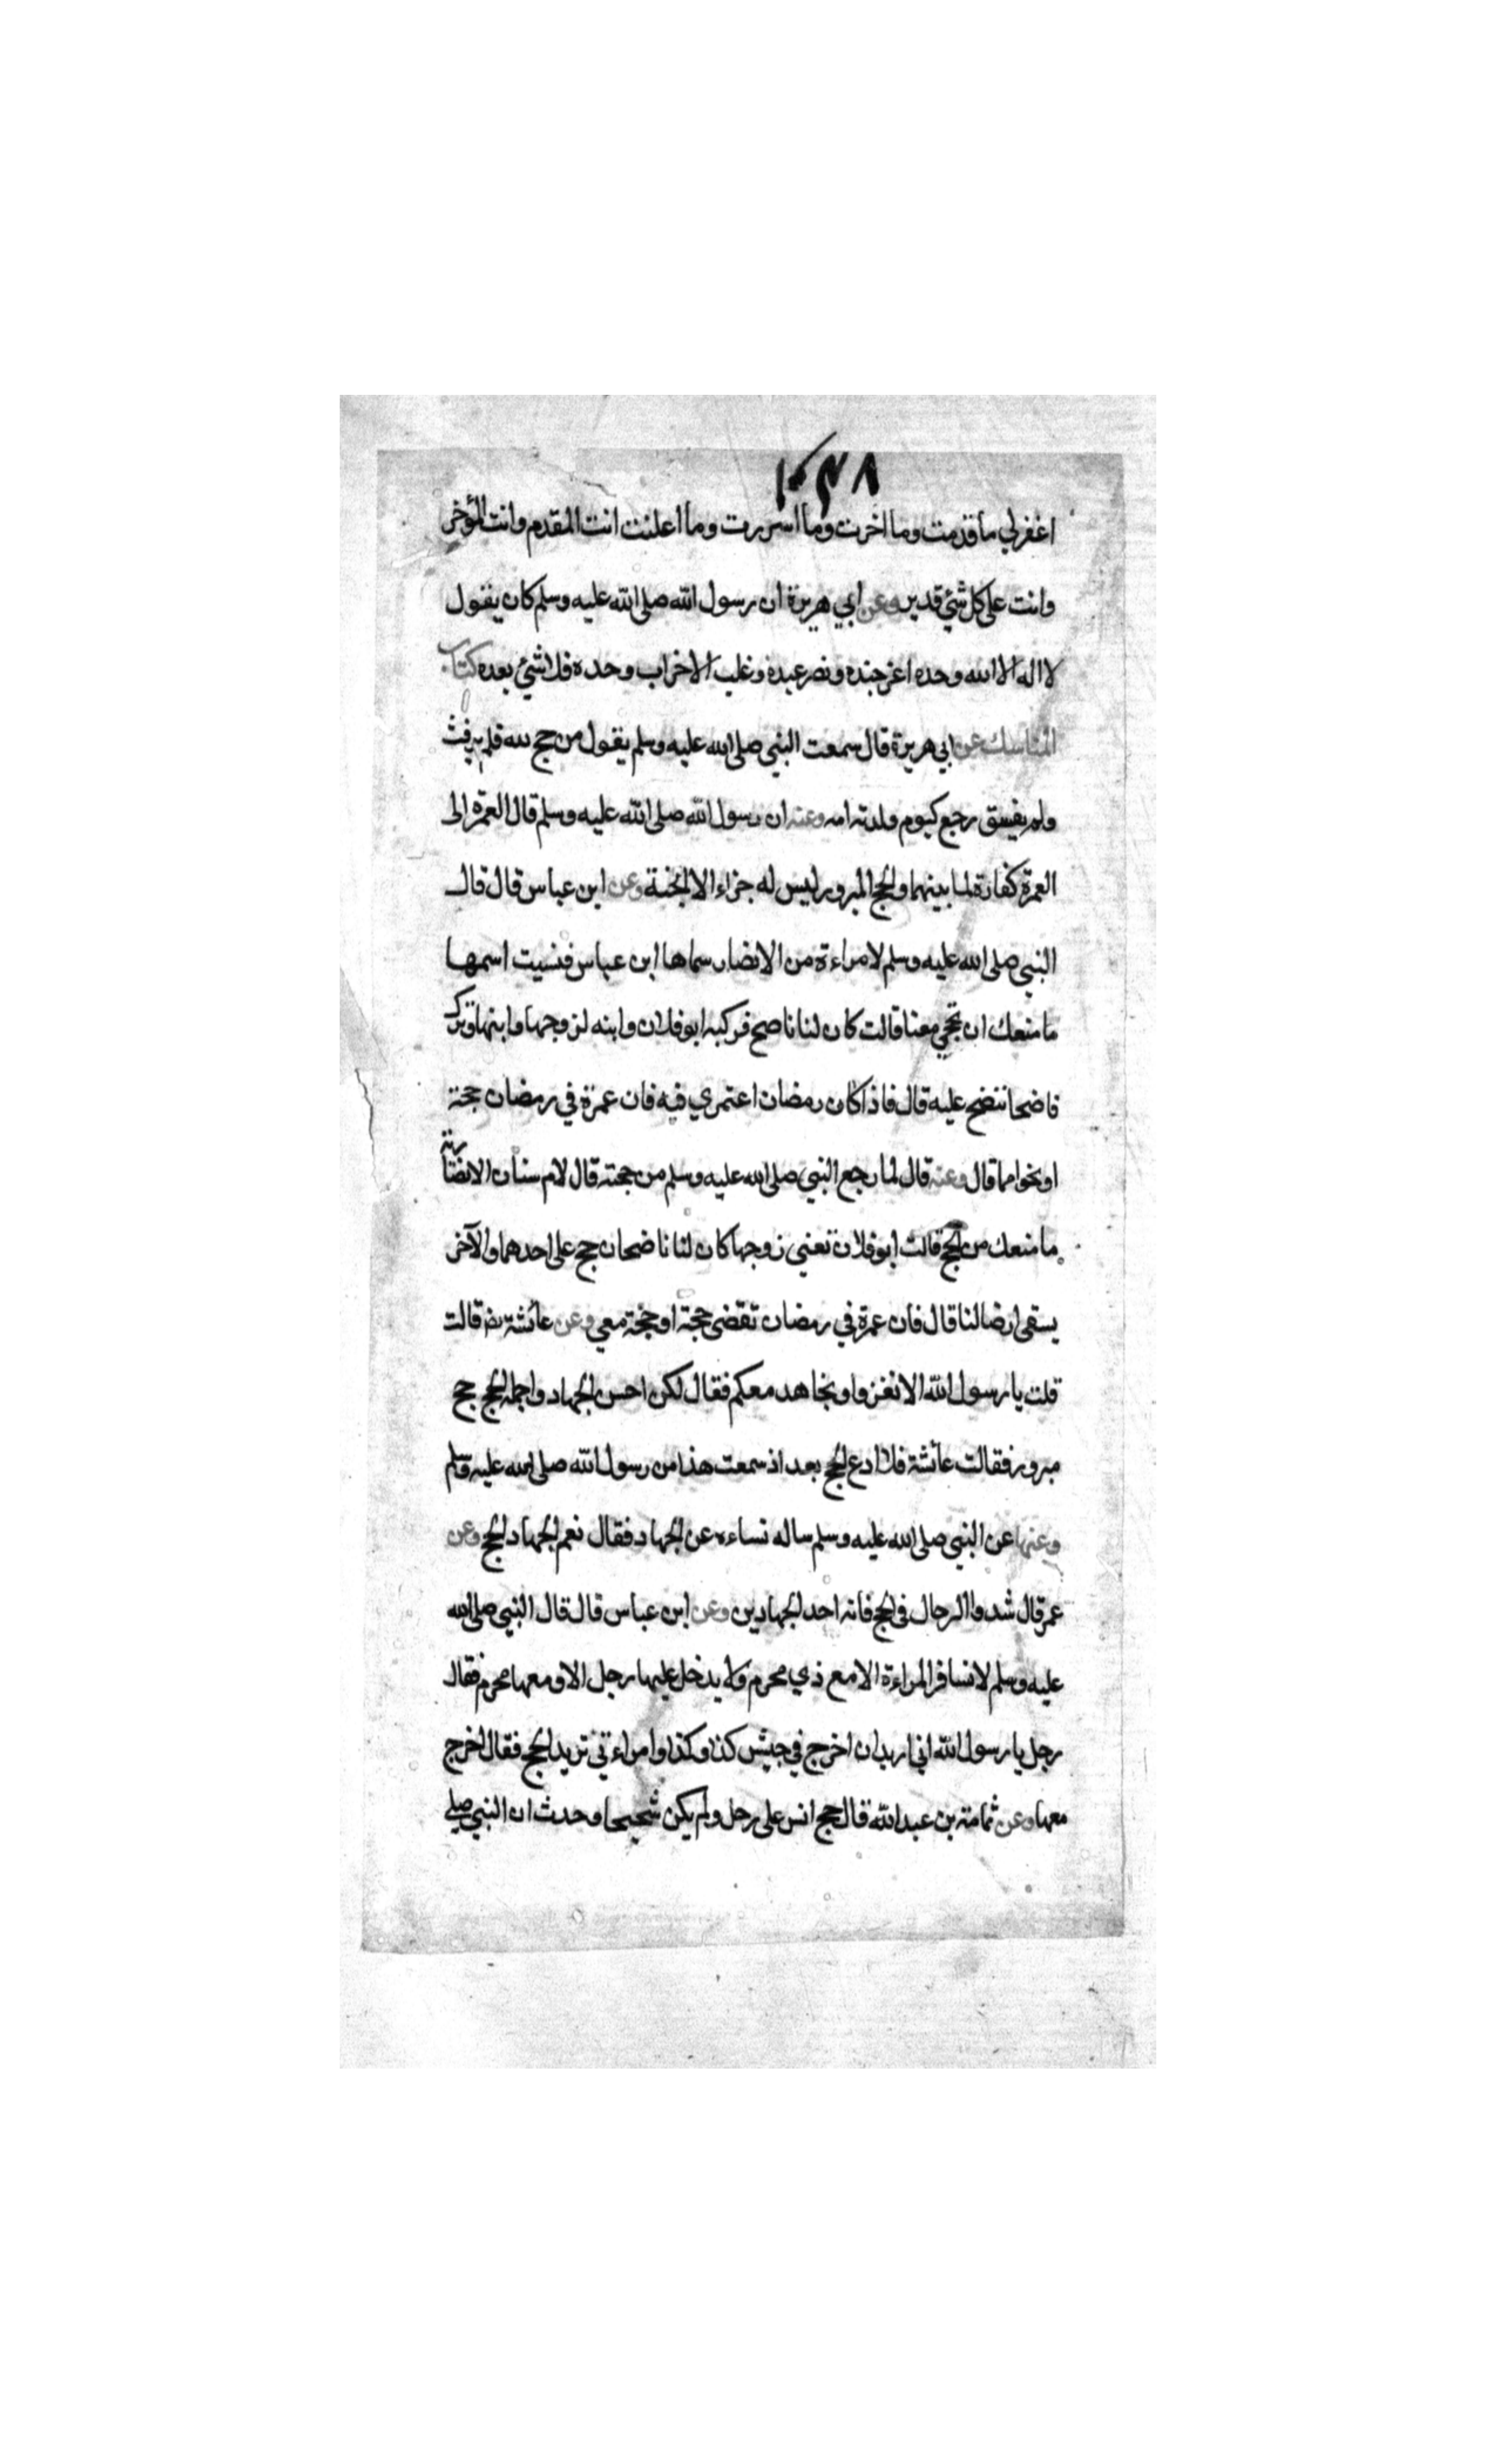 ١٠٣٨
اغفرلي ما قدمت وما اخرت وما اسررت وما اعلنت انت المقدم وانت المؤخر
وانت على كل شئ قدير وعن ابي هريرة ان رسول الله صلى الله عليه وسلم كان يقول
لا اله الا الله وحده اعز جنده ونصر عبده وغلب الاحزاب وحده فلا شئ بعده كتاب
المناسك عن ابي هريرة قال سمعت النبي صلى الله عليه وسلم يقول من حج لله فلم يرفث
ولم يفسق رجع كيوم ولدته امه وعنه ان رسول الله صلى الله عليه وسلم قال العمرة الى
العمرة كفارة لما بينهما والحج المبرور ليس له جزاء الا الجنة وعن ابن عباس قال قال
النبي صلى الله عليه وسلم لامراءة من الانصار سماها ابن عباس فنسيت اسمها
ما منعك ان تحجي معنا قالت كان لنا ناضح فركبه ابو فلان وابنه لزوجها وابنها وترك
ناضحا ننضح عليه قال فاذا كان رمضان اعتمري فيه فان عمرة في رمضان حجة
او نحوا مما قال وعنه قال لما رجع النبي صلى الله عليه وسلم من حجته قال لام سنان الانصارية
ما منعك من الحج قالت ابو فلان تعني زوجها كان لنا ناضحان حج على احدهما والآخر
يسقى ارضا لنا قال فان عمرة في رمضان تقضى حجة او حجة معي وعن عائشة رض قالت
قلت يا رسول الله الا نغزوا ونجاهد معكم فقال لكن احسن الجهاد واجمله الحج حج
مبرور فقالت عائشة فلا ادع الحج بعد اذ سمعت هذا من رسول الله صلى الله عليه وسلم
وعنها عن النبي صلى الله عليه وسلم ساله نساءه عن الجهاد فقال نعم الجهاد الحج وعن
عمر قال شدوا الرحال في الحج فانه احد الجهادين وعن ابن عباس قال قال النبي صلى الله
عليه وسلم لا تسافر المراءة الا مع ذي محرم ولا يدخل عليها رجل الا ومعها محرم فقال
رجل يا رسول الله اني اريد ان اخرج في جيش كذا وكذا وامراءتي تريد الحج فقال اخرج
معها وعن ثمامة بن عبدالله قال حج انس على رحل ولم يكن شحيحا وحدث ان النبي صلى